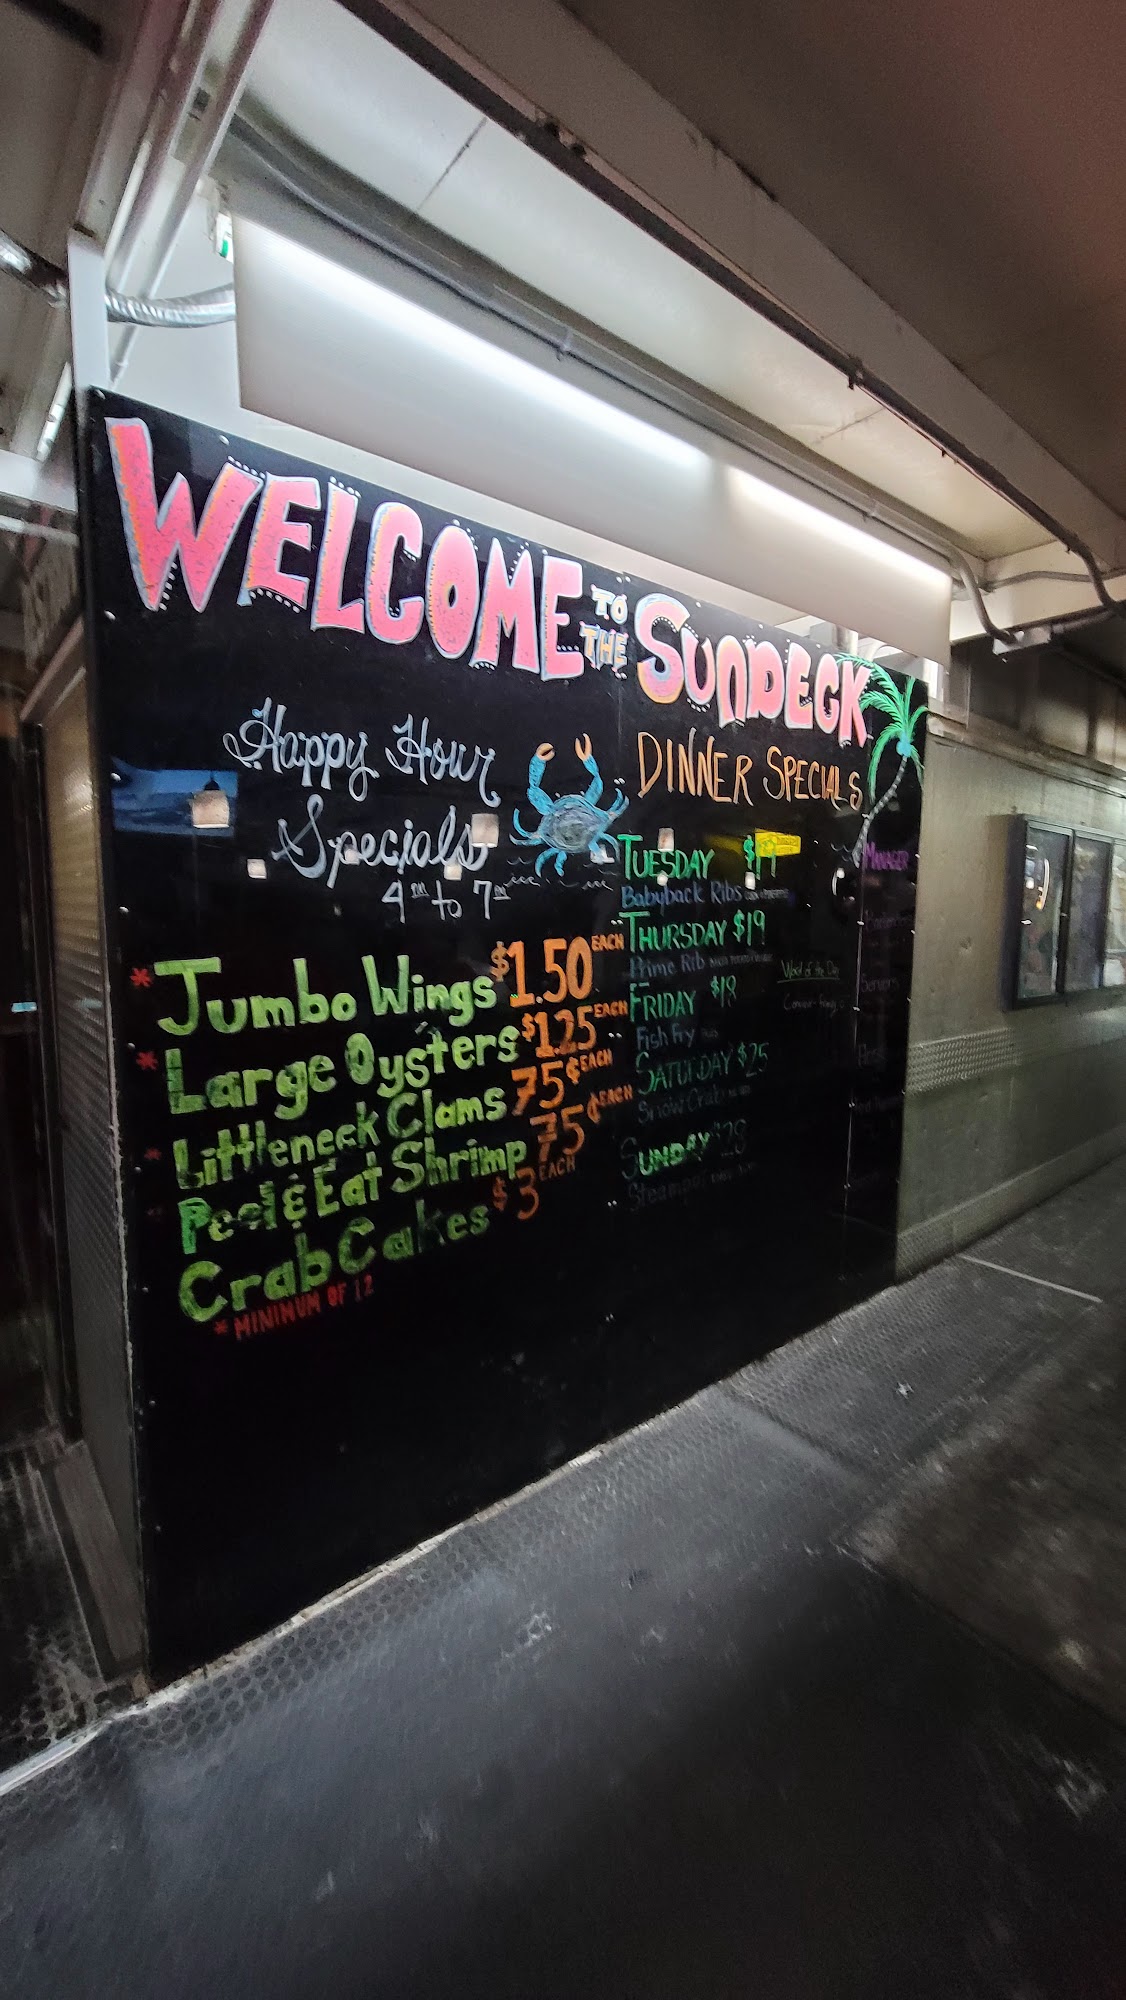 WELCOME TO THE SUNDECK
Happy Hour
Specials
4PM to 7PM
* Jumbo Wings $1.50 EACH
* Large Oysters $1.25 EACH
* Littleneck Clams 75¢ EACH
* Peel & Eat Shrimp 75¢ EACH
Crab Cakes $3 EACH
* MINIMUM OF 12
DINNER SPECIALS
TUESDAY
Babyback Ribs
THURSDAY $19
Prime Rib
FRIDAY $18
Fish Fry
SATURDAY $25
Snow Crab
SUNDAY $28
Steampot
Word of the Day
MANAGER
Bartenders
Servers